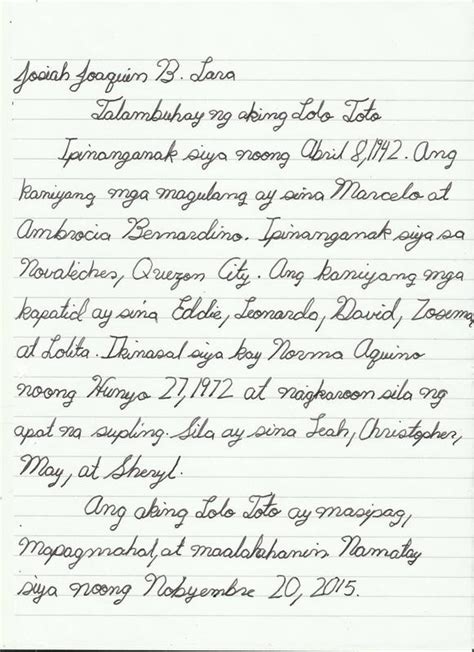 Josiah Joaquin B. Lara
Talambuhay ng aking Lolo Toto
Ipinanganak siya noong Abril 8, 1942. Ang
kaniyang mga magulang ay sina Marcelo at
Ambrocia Bernardino. Ipinanganak siya sa
Novaleches, Quezon City. Ang kaniyang mga
kapatid ay sina Eddie, Leonardo, David, Zosema,
at Lolita. Ikinasal siya kay Norma Aquino
noong Hunyo 27, 1972 at nagkaroon sila ng
apat na supling. Sila ay sina Leah, Christopher,
May, at Sheryl.
Ang aking Lolo Toto ay masipag,
Mapagmahal, at maalalahanin. Namatay
siya noong Nobyembre 20, 2015.